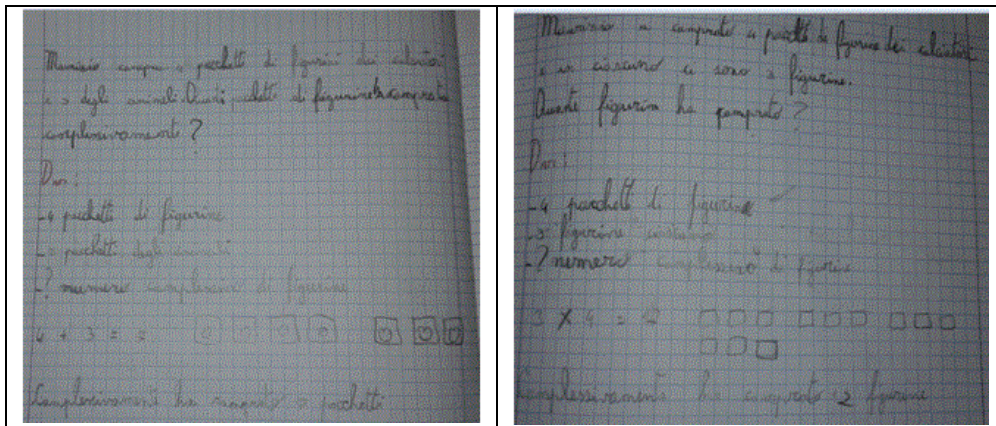 Maurizio compra 4 pacchetti di figurine dei calciatori
e 3 degli animali. Quanti pacchetti di figurine ha comprato
complessivamente?
Dati:
-4 pacchetti di figurine
-3 pacchetti degli animali
-? numero complessivo di figurine
4 + 3 =
Complessivamente ha comprato pacchetti
Maurizio ha comprato 4 pacchetti di figurine dei calciatori
e in ciascuno ci sono 3 figurine.
Quante figurine ha comprato?
Dati:
-4 pacchetti di figurine
-3 figurine
-? numero complessivo di figurine
3 X 4 = 12
Complessivamente ha comprato 12 figurine